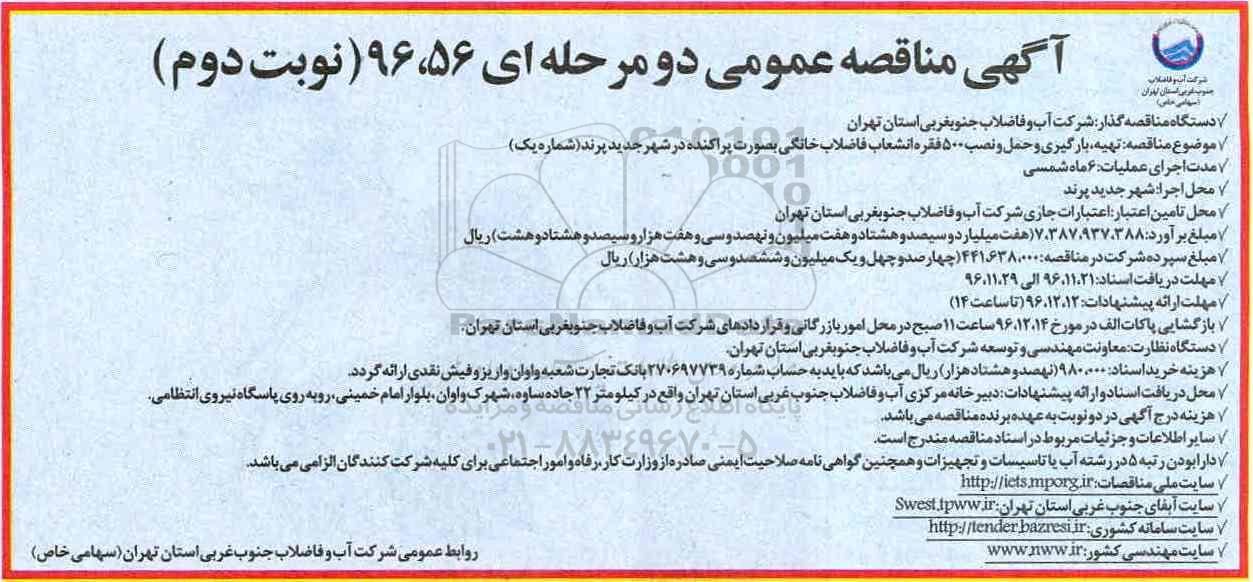 آگهی مناقصه عمومی دو مرحله ای ۹۶،۵۶ (نوبت دوم)
شرکت آب و فاضلاب
جنوب غربی استان تهران
(سهامی خاص)
√ دستگاه مناقصه گذار: شرکت آب و فاضلاب جنوبغربی استان تهران
√ موضوع مناقصه: تهیه، بارگیری و حمل و نصب ۵۰۰ فقره انشعاب فاضلاب خانگی بصورت پراکنده در شهر جدید پرند (شماره یک)
√ مدت اجرای عملیات: ۶ ماه شمسی
√ محل اجرا: شهر جدید پرند
√ محل تامین اعتبار: اعتبارات جاری شرکت آب و فاضلاب جنوبغربی استان تهران
√ مبلغ برآورد: ۷،۳۸۷،۹۳۷،۳۸۸ (هفت میلیارد و سیصد و هشتاد و هفت میلیون و نهصد و سی و هفت هزار و سیصد و هشتاد و هشت) ریال
√ مبلغ سپرده شرکت در مناقصه: ۴۴۱،۶۳۸،۰۰۰ (چهارصد و چهل و یک میلیون و ششصد و سی و هشت هزار) ریال
√ مهلت دریافت اسناد: ۹۶،۱۱،۲۱ الی ۹۶،۱۱،۲۹
√ مهلت ارائه پیشنهادات: ۹۶،۱۲،۱۲ (تا ساعت ۱۴)
√ بازگشایی پاکات الف در مورخ ۹۶،۱۲،۱۴ ساعت ۱۱ صبح در محل امور بازرگانی و قراردادهای شرکت آب و فاضلاب جنوبغربی استان تهران.
√ دستگاه نظارت: معاونت مهندسی و توسعه شرکت آب و فاضلاب جنوبغربی استان تهران.
√ هزینه خرید اسناد: ۹۸۰،۰۰۰ (نهصد و هشتاد هزار) ریال می باشد که باید به حساب شماره ۲۷۰۶۹۷۷۳۹ بانک تجارت شعبه واوان واریز و فیش نقدی ارائه گردد.
√ محل دریافت اسناد و ارائه پیشنهادات: دبیرخانه مرکزی آب و فاضلاب جنوب غربی استان تهران واقع در کیلومتر ۲۲ جاده ساوه، شهرک واوان، بلوار امام خمینی، روبه روی پاسگاه نیروی انتظامی.
√ هزینه درج آگهی در دو نوبت به عهده برنده مناقصه می باشد.
√ سایر اطلاعات و جزئیات مربوط در اسناد مناقصه مندرج است.
√ دارا بودن رتبه ۵ در رشته آب یا تاسیسات و تجهیزات و همچنین گواهی نامه صلاحیت ایمنی صادره از وزارت کار، رفاه و امور اجتماعی برای کلیه شرکت کنندگان الزامی می باشد.
√ سایت ملی مناقصات: http://iets.mporg.ir
√ سایت آبفای جنوب غربی استان تهران: Swest.tpww.ir
√ سایت سامانه کشوری: http://tender.bazresi.ir
√ سایت مهندسی کشور: www.nww.ir
روابط عمومی شرکت آب و فاضلاب جنوب غربی استان تهران (سهامی خاص)
پایگاه اطلاع رسانی مناقصه و مزایده
۰۲۱-۸۸۳۴۹۶۷۰-۵